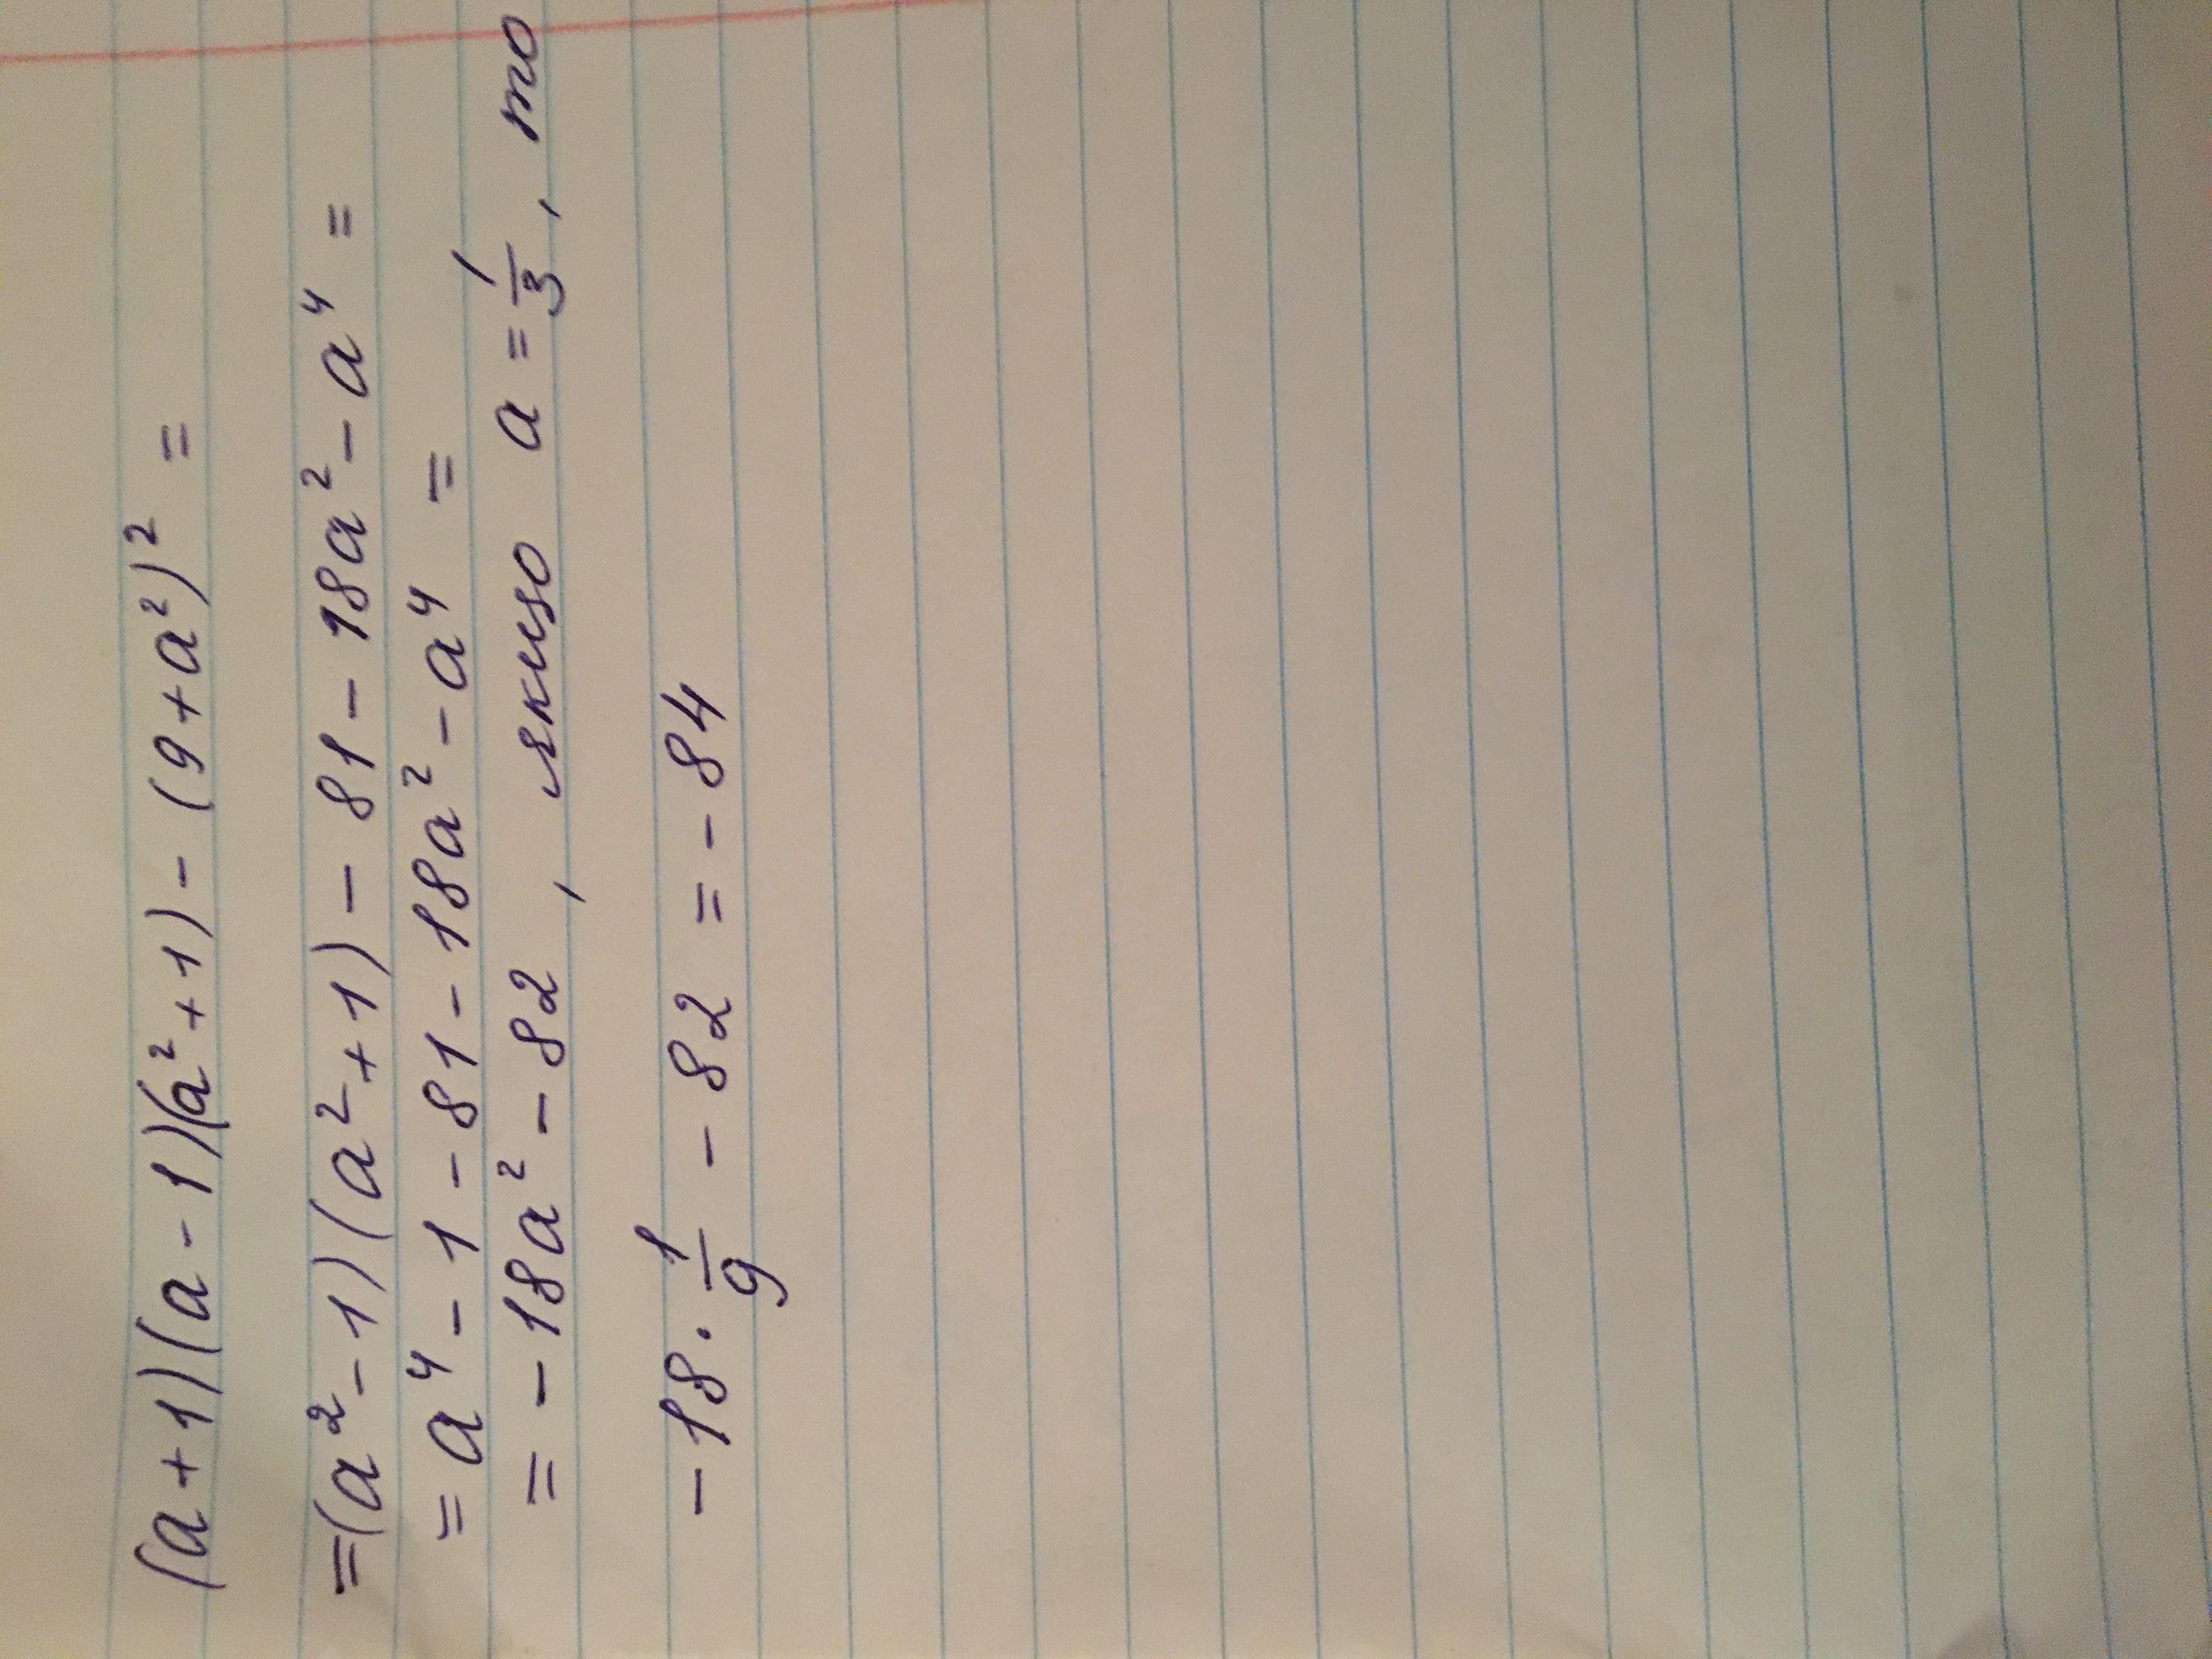 (a+1)(a-1)(a²+1)-(9+a²)² =
=(a²-1)(a²+1)-81-18a²-a⁴ =
= a⁴-1-81-18a²-a⁴ =
= -18a²-82, якщо a = 1/3, то
-18 · 1/9 - 82 = -84